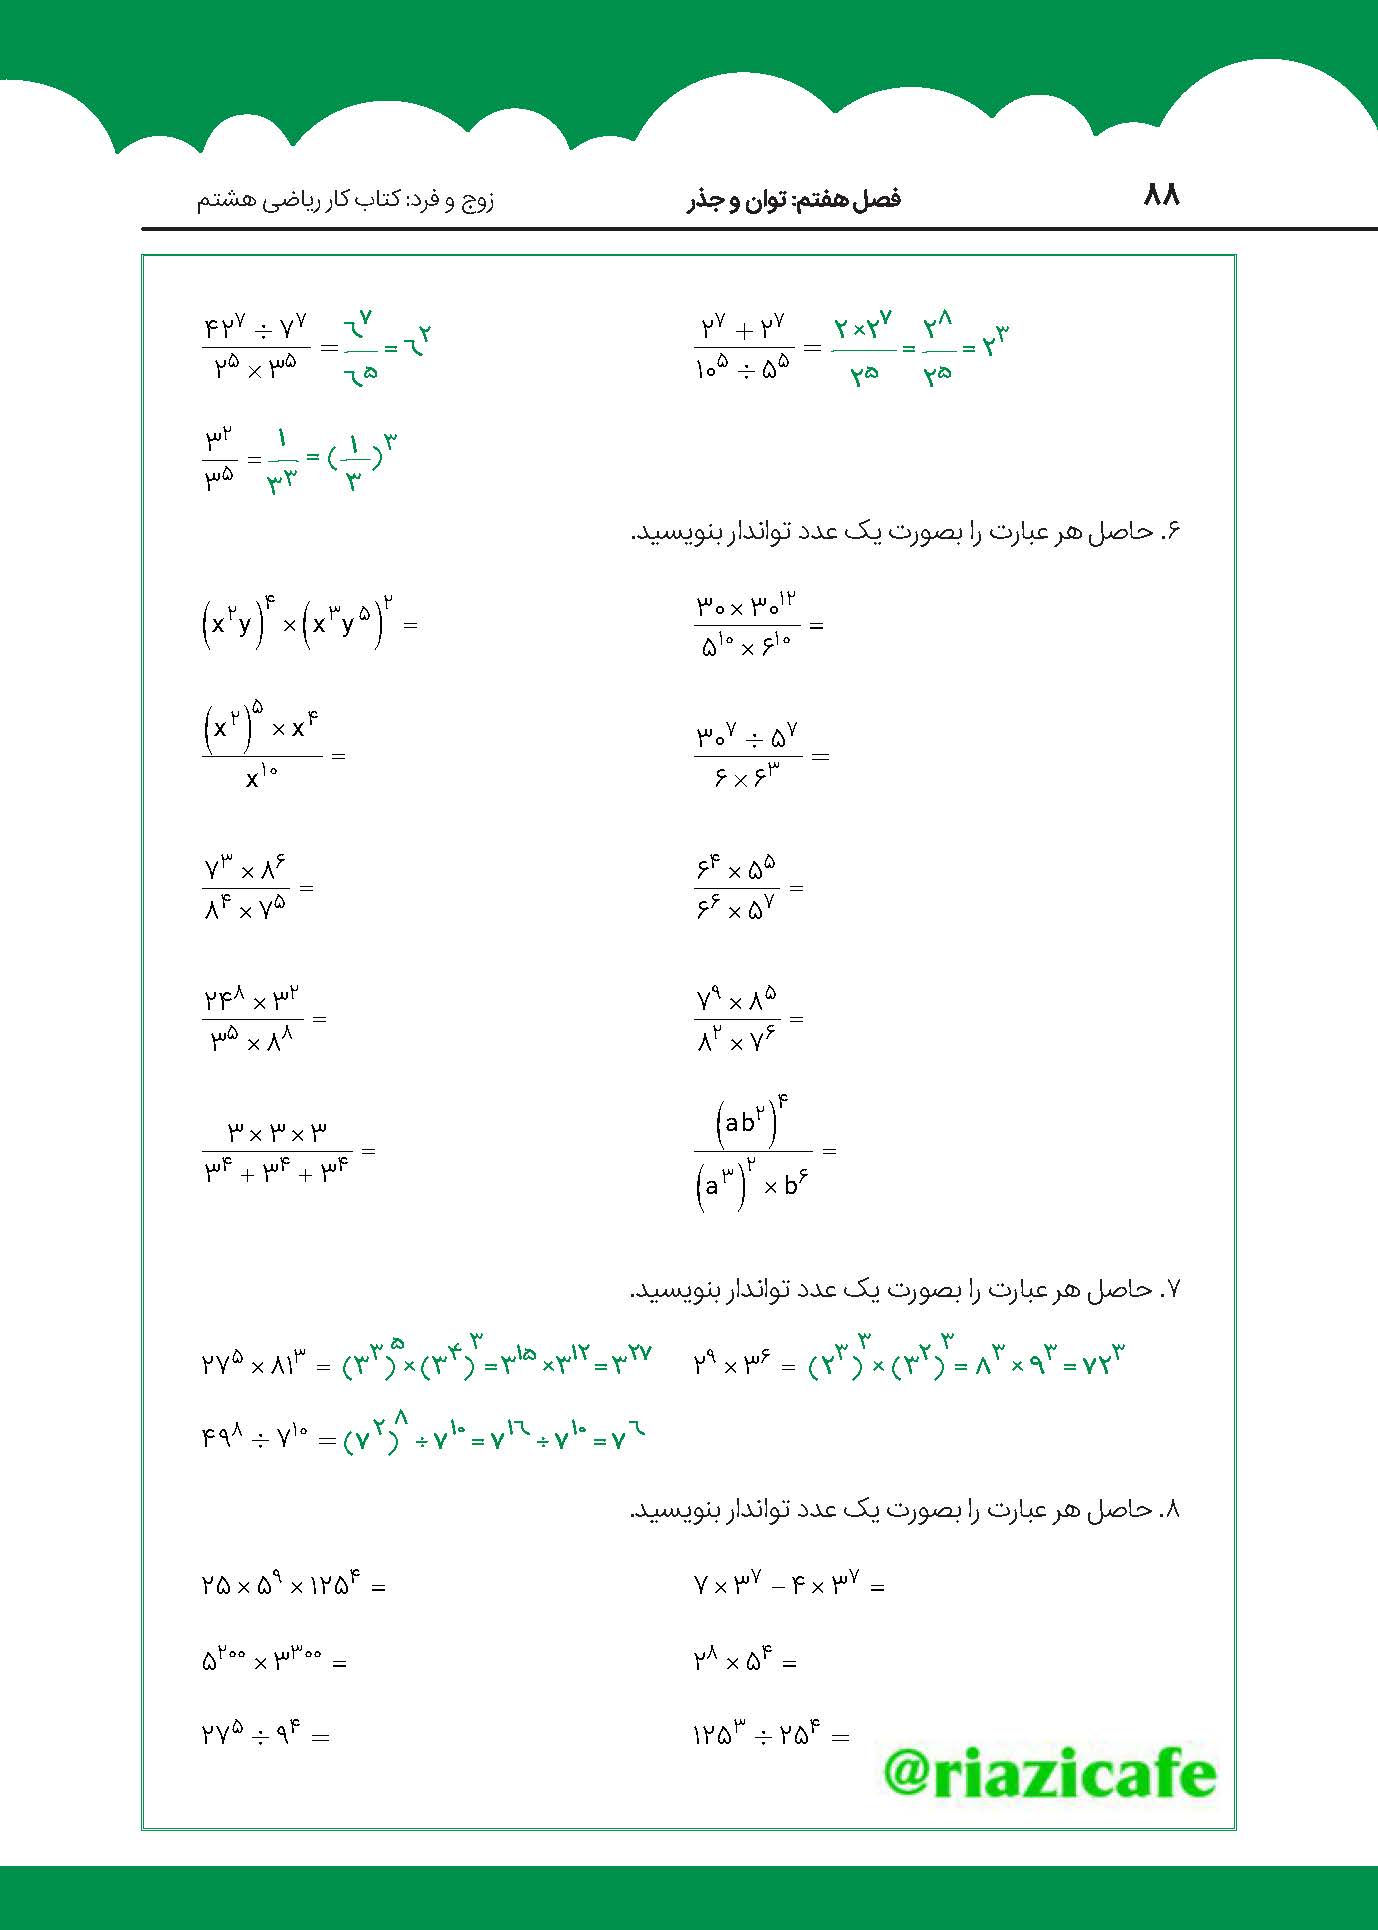 ۸۸ فصل هفتم: توان و جذر زوج و فرد: کتاب کار ریاضی هشتم
(۲^۷ + ۲^۷)/(۱۰^۵ ÷ ۵^۵) = (۲×۲^۷)/(۲^۵) = ۲^۸/۲^۵ = ۲^۳
(۴۲^۷ ÷ ۷^۷)/(۲^۵ × ۳^۵) = ۶^۷/۶^۵ = ۶^۲
۳^۲/۳^۵ = ۱/۳^۳ = (۱/۳)^۳
۶. حاصل هر عبارت را بصورت یک عدد تواندار بنویسید.
(۳۰ × ۳۰^۱۲)/(۵^۱۰ × ۶^۱۰) =
(x^۲y)^۴ × (x^۳y^۵)^۲ =
(۳۰^۷ ÷ ۵^۷)/(۶ × ۶^۳) =
((x^۲)^۵ × x^۴)/x^۱۰ =
(۶^۴ × ۵^۵)/(۶^۶ × ۵^۷) =
(۷^۳ × ۸^۶)/(۸^۴ × ۷^۵) =
(۷^۹ × ۸^۵)/(۸^۲ × ۷^۶) =
(۲۴^۸ × ۳^۲)/(۳^۵ × ۸^۸) =
(ab^۲)^۴/((a^۳)^۲ × b^۶) =
(۳ × ۳ × ۳)/(۳^۴ + ۳^۴ + ۳^۴) =
۷. حاصل هر عبارت را بصورت یک عدد تواندار بنویسید.
۲^۹ × ۳^۶ = (۲^۳)^۳ × (۳^۲)^۳ = ۸^۳ × ۹^۳ = ۷۲^۳
۲۷^۵ × ۸۱^۳ = (۳^۳)^۵ × (۳^۴)^۳ = ۳^۱۵ × ۳^۱۲ = ۳^۲۷
۴۹^۸ ÷ ۷^۱۰ = (۷^۲)^۸ ÷ ۷^۱۰ = ۷^۱۶ ÷ ۷^۱۰ = ۷^۶
۸. حاصل هر عبارت را بصورت یک عدد تواندار بنویسید.
۷ × ۳^۷ − ۴ × ۳^۷ =
۲۵ × ۵^۹ × ۱۲۵^۴ =
۲^۸ × ۵^۴ =
۵^۲۰۰ × ۳^۳۰۰ =
۱۲۵^۳ ÷ ۲۵^۴ =
۲۷^۵ ÷ ۹^۴ =
@riazicafe